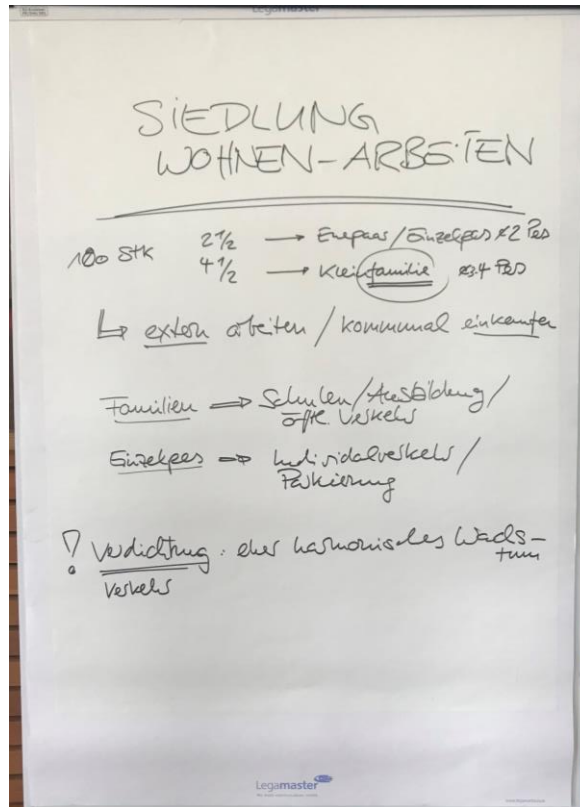 Legamaster
SIEDLUNG
WOHNEN-ARBEITEN
100 Stk 2 1/2 → Ehepaar/Einzelpers 2 Pers
4 1/2 → Kleinfamilie 3-4 Pers
↳ extern arbeiten / kommunal einkaufen
Familien ⇒ Schulen/Ausbildung/
öftl. Verkehr
Einzelpers ⇒ Individalverkehr/
Parkierung
! Verdichtung: eher harmonisches Wachs-
tum
Verkehr
Legamaster